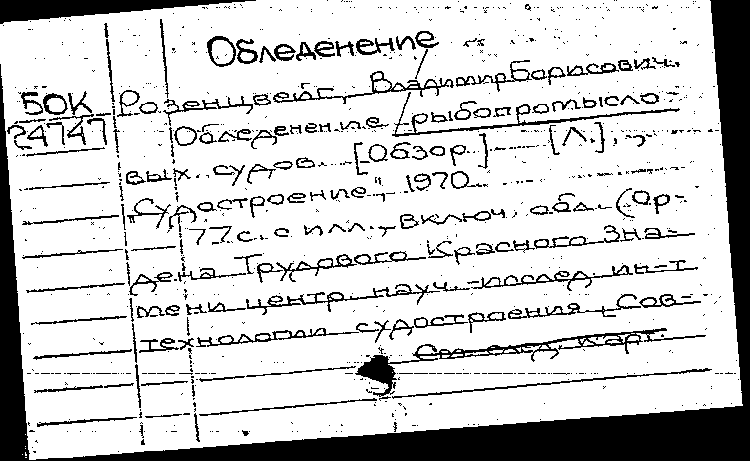 Обледенение
БОК Розенцвейг, Владимир Борисович.
24747 Обледенение рыбопромысло-
вых судов. [Обзор.] [Л.], „
„Судостроение", 1970
77 с. с илл., включ. обл. (Ор-
дена Трудового Красного Зна-
мени центр. науч.-исслед. ин-т
технологии судостроения. Сов-
См. след. карт.